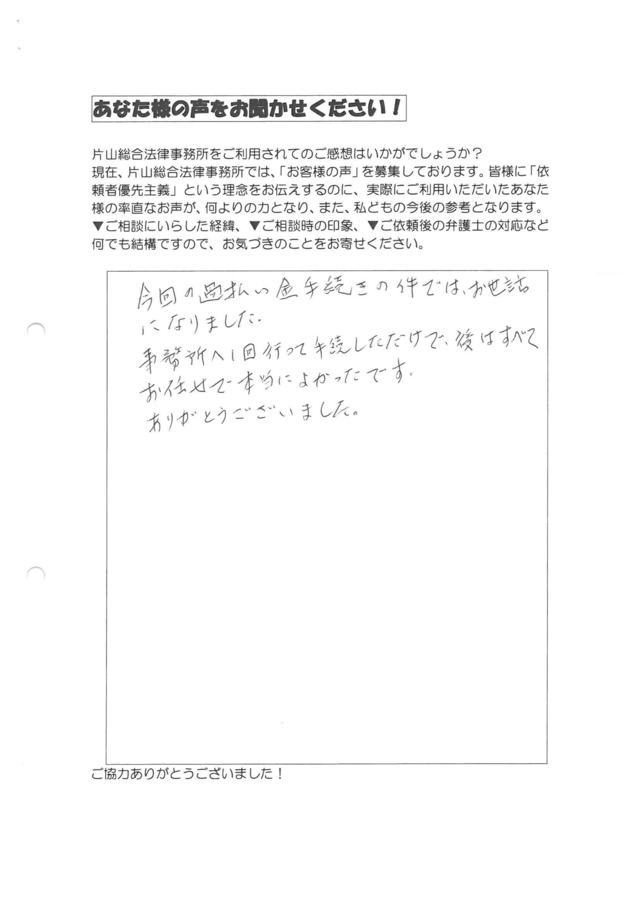 あなた様の声をお聞かせください！
片山総合法律事務所をご利用されてのご感想はいかがでしょうか？
現在、片山総合法律事務所では、「お客様の声」を募集しております。皆様に「依
頼者優先主義」という理念をお伝えするのに、実際にご利用いただいたあなた
様の率直なお声が、何よりの力となり、また、私どもの今後の参考となります。
▼ご相談にいらした経緯、▼ご相談時の印象、▼ご依頼後の弁護士の対応など
何でも結構ですので、お気づきのことをお寄せください。
今回の過払い金手続きの件では、お世話
になりました.
事務所へ1回行って手続しただけで、後はすべて
お任せで本当によかったです.
ありがとうございました。
ご協力ありがとうございました！